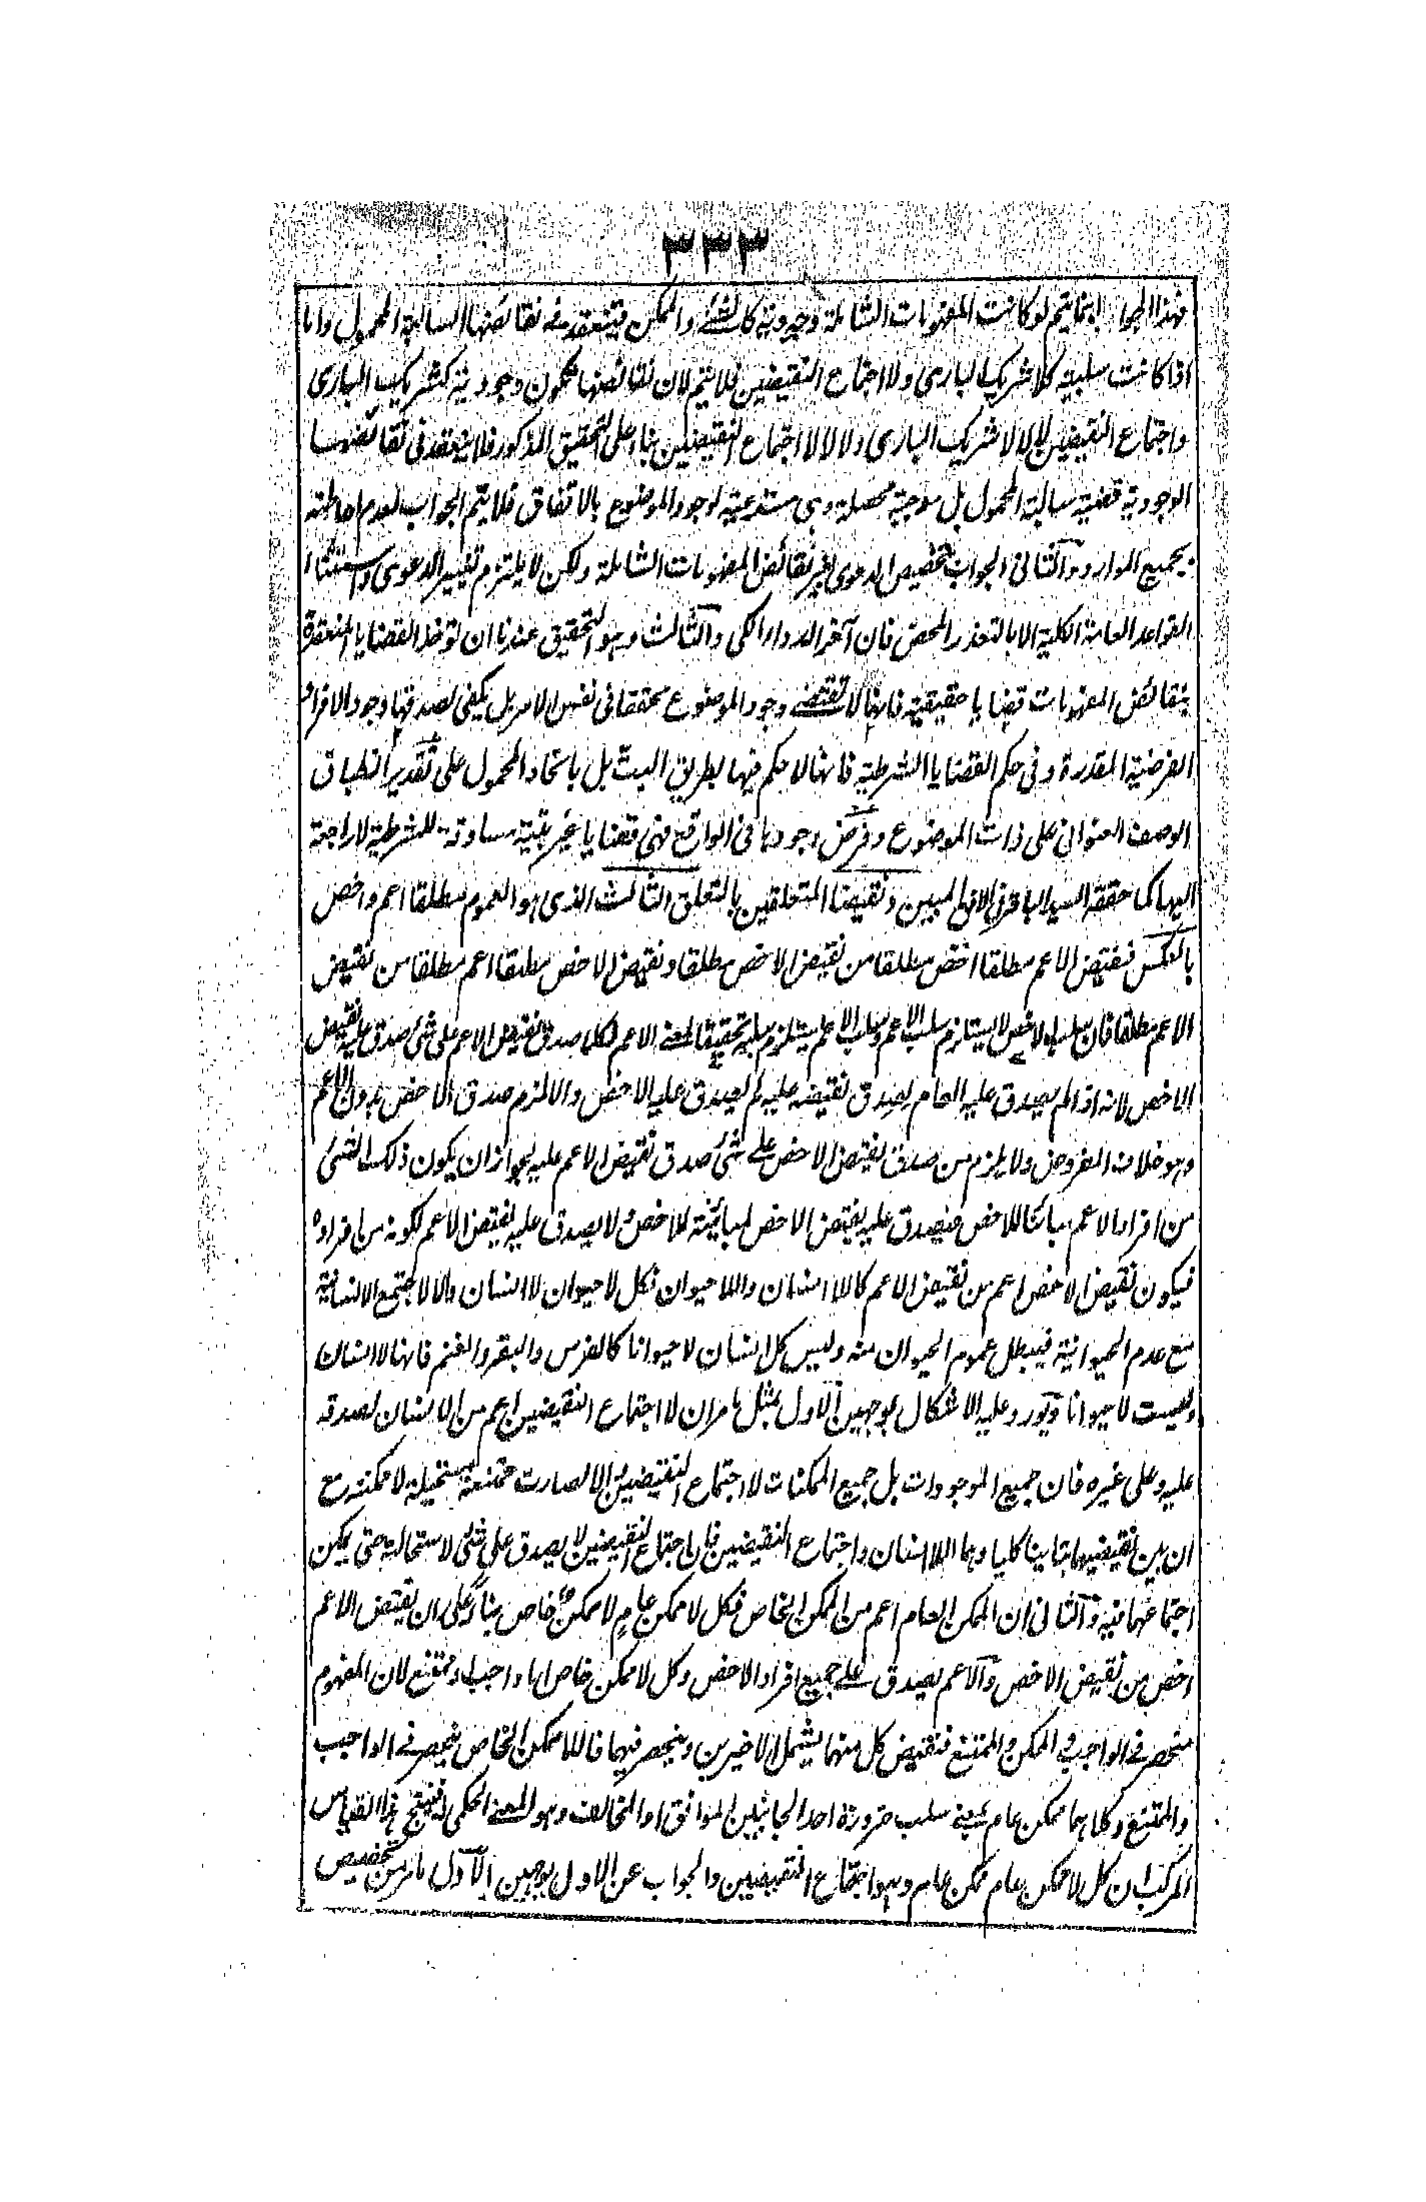 ٣٣٣
فهذا الجواب انما يتم لو كانت المفهومات الشاملة وجودية كالشئ والممكن فينعقد من نقائضها السالبة المحمول واما
اذا كانت سلبية كلا شريك الباري ولا اجتماع النقيضين فلا يتم لان نقائضها تكون وجودية كشريك الباري
واجتماع النقيضين لا لا لا شريك الباري ولا لا لا اجتماع النقيضين بناء على التحقيق المذكور فلا ينعقد في نقائضها
الوجودية قضية سالبة المحمول بل موجبة محصلة وهى مستدعية لوجود الموضوع بالاتفاق فلا يتم الجواب لعدم احاطته
بجميع الموارد والثاني الجواب بتخصيص الدعوى بغير نقائض المفهومات الشاملة ولكن لا يلتزم تغيير الدعوى واستثناء
القواعد العامة الكلية الا بالتعذر المحض فان آخر الدواء الكي والثالث وهو التحقيق عندنا ان توخذ القضايا المنعقدة
بنقائض المفهومات قضايا حقيقية فانها لا تقتضي وجود الموضوع محققا في نفس الامر بل يكفى لصدقها وجود الافراد
الفرضية المقدرة وفى حكم القضايا الشرطية فانها لا حكم فيها بطريق البت بل باتحاد المحمول على تقدير انطباق
الوصف العنوانى على ذات الموضوع وفرض وجودها فى الواقع فهى قضايا غير بتية مساوقة للشرطية لا راجعة
اليها كما حققه السيد الباقر فى الافق المبين ونقيضا المتعلقين بالتعلق الثالث الذى هو العموم مطلقا اعم واخص
بالعكس فنقيض الاعم مطلقا اخص مطلقا من نقيض الاخص مطلقا ونقيض الاخص مطلقا اعم مطلقا من نقيض
الاعم مطلقا فان سلب الاخص لا يستلزم سلب الاعم وسلب الاعم يستلزم سلبه تحقيقا لمعنى الاعم فكلما صدق نقيض الاعم على شئ صدق عليه نقيض
الاخص لانه اذا لم يصدق عليه العام لصدق نقيضه عليه لم يصدق عليه الاخص والا لزم صدق الاخص بدون الاعم
وهو خلاف المفروض ولا يلزم من صدق نقيض الاخص على شئ صدق نقيض الاعم عليه لجواز ان يكون ذلك الشئ
من افراد الاعم مبائنا للاخص فيصدق عليه نقيض الاخص لمبائنته للاخص ولا يصدق عليه نقيض الاعم لكونه من افراده
فيكون نقيض الاخص اعم من نقيض الاعم كاللا انسان واللا حيوان فكل لا حيوان لا انسان والا لاجتمع الانسانية
مع عدم الحيوانية فيبطل عموم الحيوان منه وليس كل لا انسان لا حيوانا كالفرس والبقر والغنم فانها لا انسان
وليست لا حيوانا ويورد عليه الاشكال بوجهين الاول بمثل ما مر ان لا اجتماع النقيضين اعم من الانسان لصدقه
عليه وعلى غيره فان جميع الموجودات بل جميع الممكنات لا اجتماع النقيضين والا لصارت ممتنعة مستحيلة لا ممكنة مع
ان بين نقيضيهما تباينا كليا وهما اللا انسان واجتماع النقيضين فان اجتماع النقيضين لا يصدق على شئ لاستحالته حتى يمكن
اجتماعهما فيه والثانى ان الممكن العام اعم من الممكن الخاص فكل لا ممكن عام لا ممكن خاص بناء على ان نقيض الاعم
اخص من نقيض الاخص والاعم يصدق على جميع افراد الاخص وكل لا ممكن خاص اما واجب او ممتنع لان المفهوم
منحصر فى الواجب فى الممكن والممتنع فنقيض كل منهما يشمل الاخيرين وينحصر فيهما فاللا ممكن الخاص ينحصر فى الواجب
والممتنع وكلاهما ممكن عام بمعنى سلب ضرورة احد الجانبين الموافق او المخالف وهو المعنى الحكمى فينتج هذا القياس
المركب ان كل لا ممكن عام ممكن عام وهو اجتماع النقيضين والجواب عن الاول بوجهين الاول ما مر من تخصيص